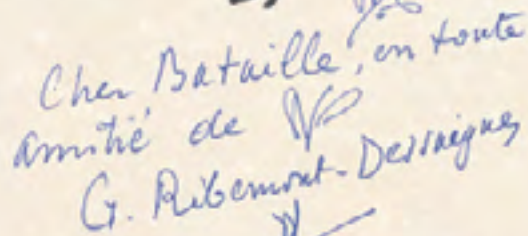 Cher Bataille, en toute
amitié de
G. Ribemont-Dessaignes